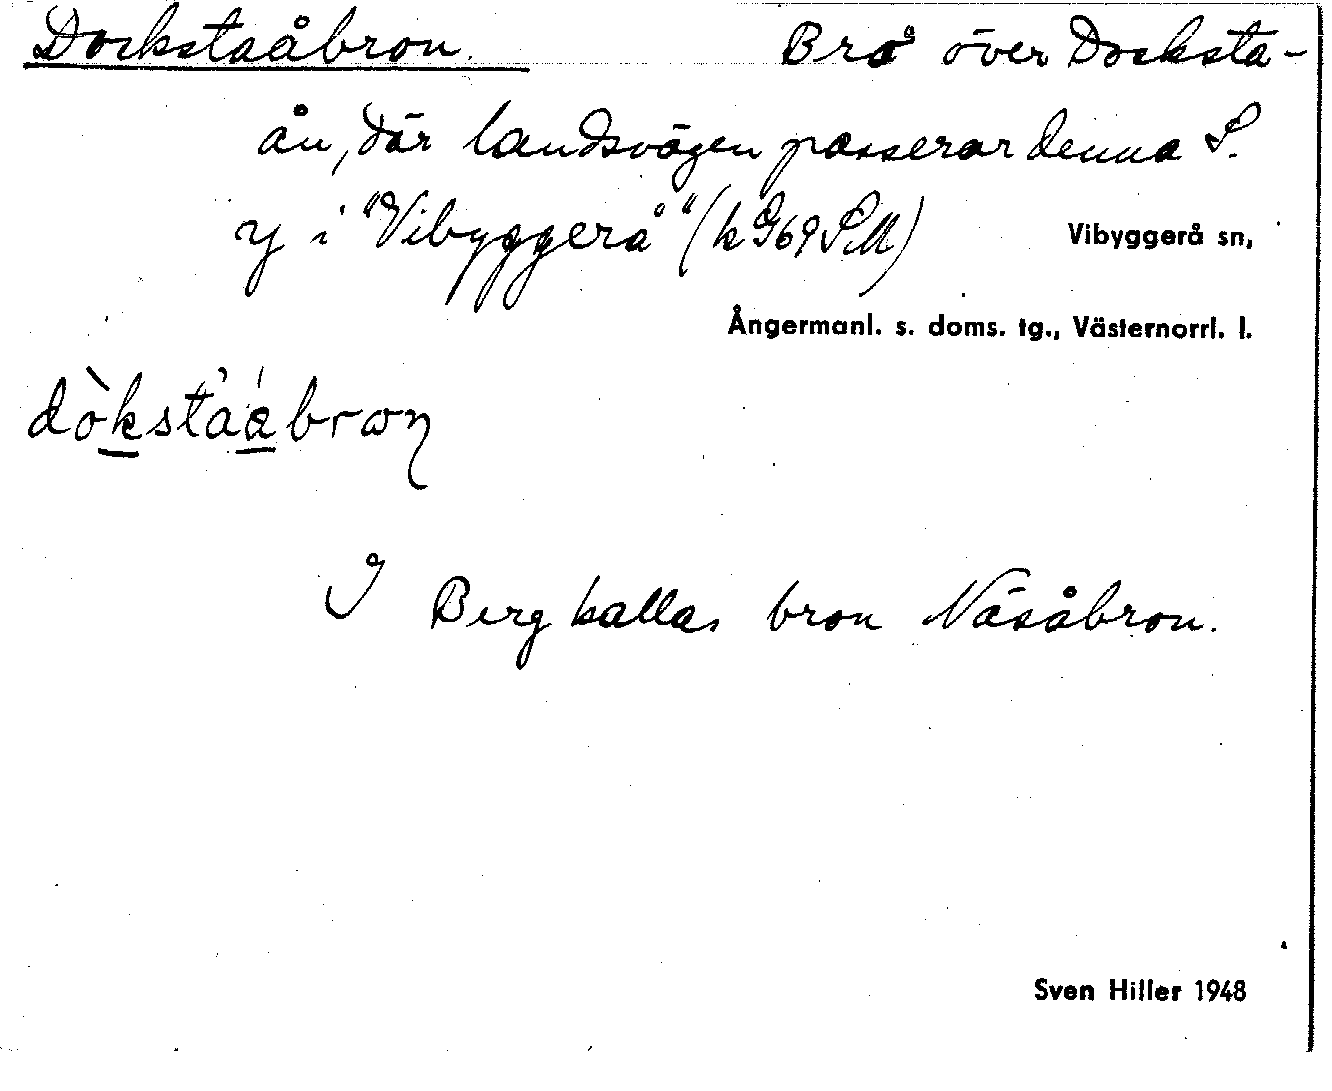 Dockstaåbron. Bro över Docksta-
ån, där landsvägen passerar denna S.
y i "Vibyggerå" (k G69 SM) Vibyggerå sn,
Ångermanl. s. doms. tg., Västernorrl. l.
I Berg kallas bron Näsåbron.
Sven Hiller 1948